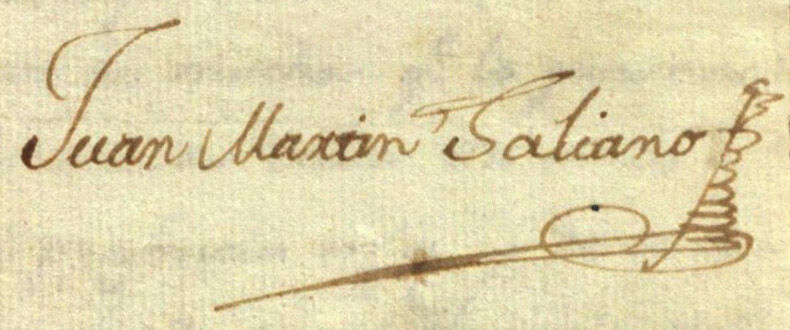 Juan Martin Galiano